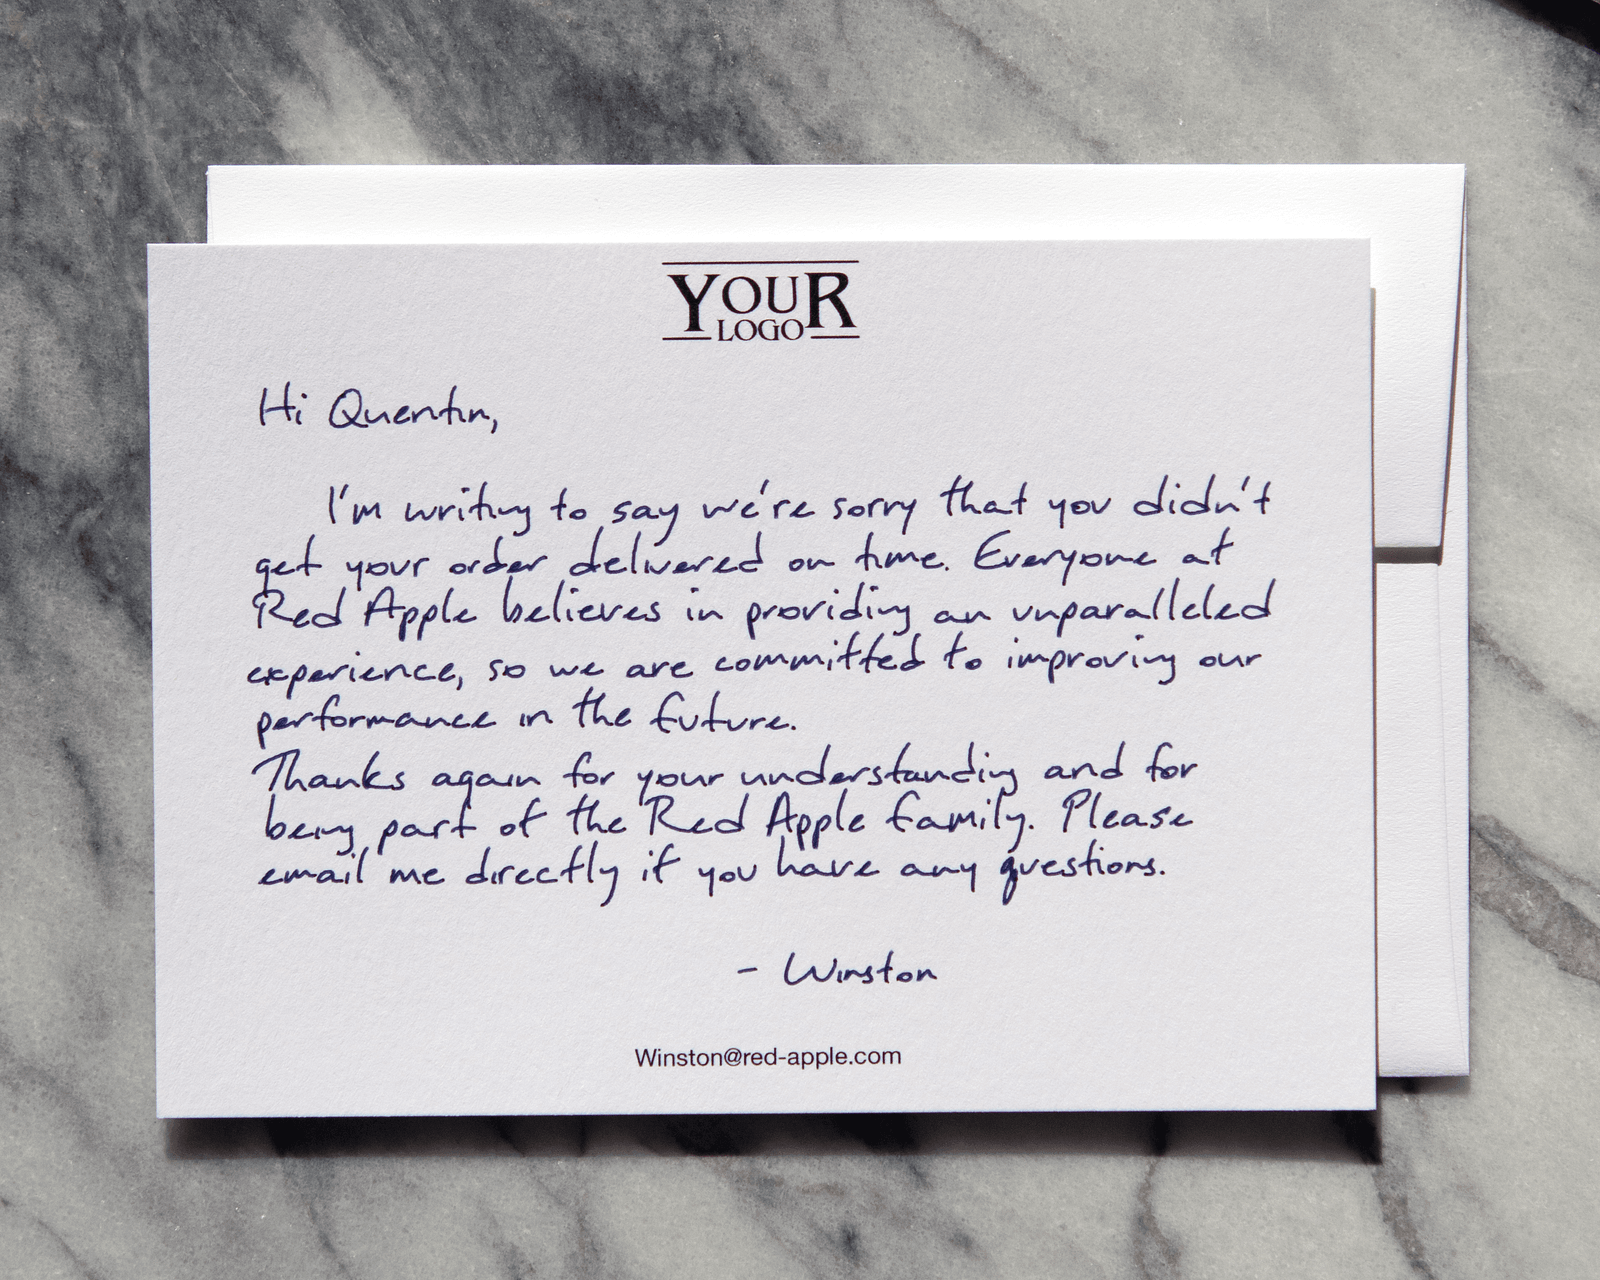 YOUR
LOGO
Hi Quentin,
I'm writing to say we're sorry that you didn't
get your order delivered on time. Everyone at
Red Apple believes in providing an unparalleled
experience, so we are committed to improving our
performance in the future.
Thanks again for your understanding and for
being part of the Red Apple family. Please
email me directly if you have any questions.
- Winston
Winston@red-apple.com